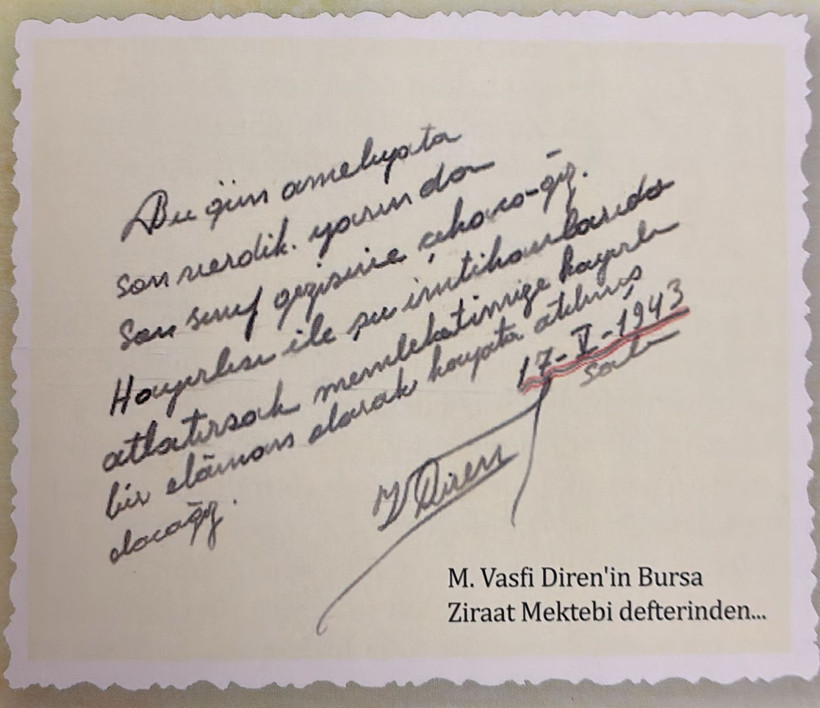 Bu gün ameliyata
son verdik. yarın da
son sınıf gezisine çıkaca-ğız.
Hayırlısı ile şu imtihanlarıda
atlatırsak memleketimize hayırlı
bir elâman olarak hayata atılmış
olacağız.
17-V-1943
Salı
V Diren
M. Vasfi Diren'in Bursa
Ziraat Mektebi defterinden...